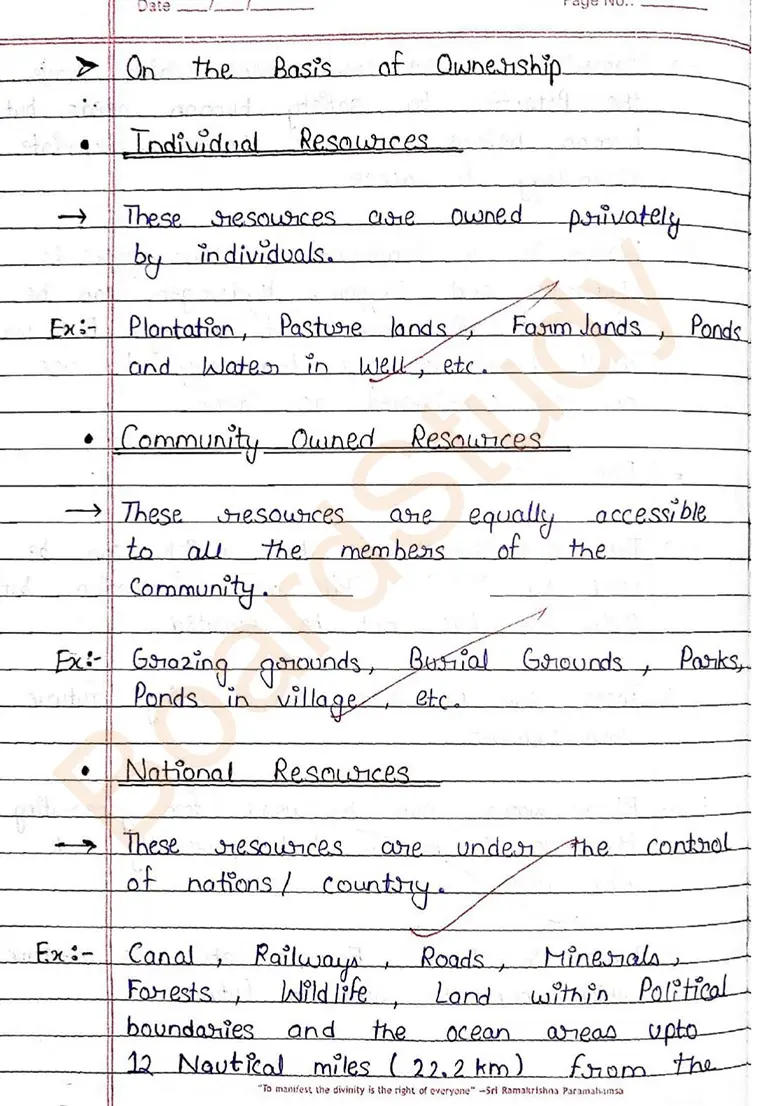 Date ___/___/___ Page No.: ______
➤ On the Basis of Ownership
• Individual Resources
→ These resources are owned privately
by individuals.
Ex:- Plantation, Pasture lands, Farm lands, Ponds
and Water in Well, etc.
• Community Owned Resources
→ These resources are equally accessible
to all the members of the
Community.
Ex:- Grazing grounds, Burial Grounds, Parks,
Ponds in village, etc.
• National Resources
→ These resources are under the control
of nations/ country.
Ex:- Canal, Railways, Roads, Minerals,
Forests, Wildlife, Land within Political
boundaries and the ocean areas upto
12 Nautical miles (22.2 km) from the
"To manifest the divinity is the right of everyone" –Sri Ramakrishna Paramahamsa
BoardStudy